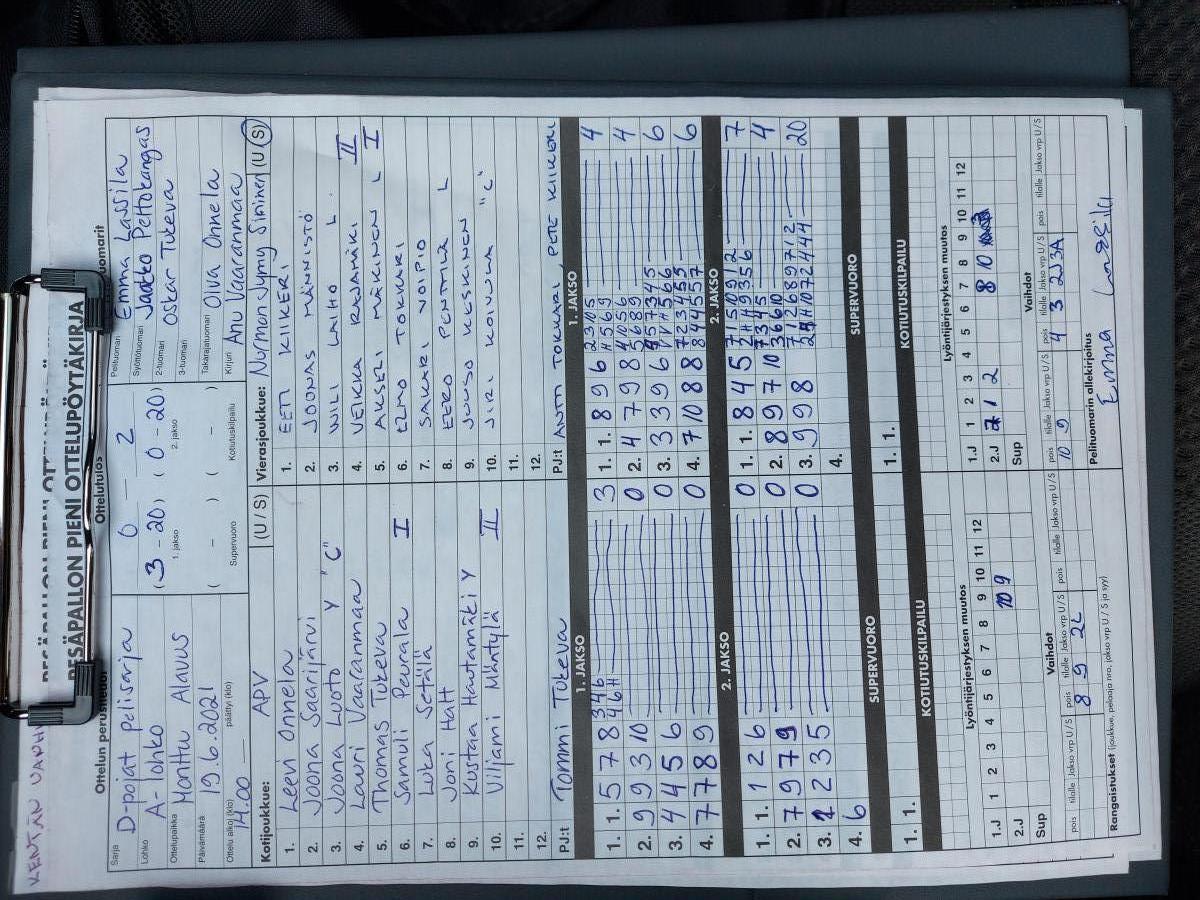 KENTÄN VAPH
PESÄPALLON PIENI OTTELUPÖYTÄKIRJA
Ottelun perustiedot
Sarja D-pojat pelisarja
Lohko A-lohko
Ottelupaikka Monttu Alavus
Päivämäärä 19.6.2021
Ottelu alkoi (klo) 14.00 päättyi (klo)
Ottelutulos
0 – 2
(3 – 20) (0 – 20)
1. jakso 2. jakso
( – ) ( – )
Supervuoro Kotiutuskilpailu
Tuomarit
Pelituomari Emma Lassila
Syöttötuomari Jaakko Peltokangas
2-tuomari Oskar Tukeva
3-tuomari
Takarajatuomari Oiva Onnela
Kirjuri Anu Vaaranmaa
Kotijoukkue: APV (U / S)
1. Leevi Onnela
2. Joona Saarijärvi
3. Joona Luoto Y "C"
4. Lauri Vaaranmaa
5. Thomas Tukeva
6. Samuli Peurala I
7. Luka Setälä
8. Joni Hatt
9. Kustaa Hautamäki Y
10. Viljami Mäntylä II
11.
12.
PJ:t Tommi Tukeva
1. JAKSO
1. 1. 5 7 8 3 4 6 3
4 6 H
2. 9 9 3 10 0
3. 4 4 5 6 0
4. 7 7 8 9 0
2. JAKSO
1. 1. 1 2 6 0
2. 7 9 7 9 0
3. 2 2 3 5 0
4. 6
SUPERVUORO
1. 1.
KOTIUTUSKILPAILU
Lyöntijärjestyksen muutos
1 2 3 4 5 6 7 8 9 10 11 12
1.J 10 9
2.J
Sup
Vaihdot
pois tilalle Jakso vrp U / S pois tilalle Jakso vrp U / S pois tilalle Jakso vrp U / S
8 9 2L
Rangaistukset (joukkue, pelaaja nro, jakso vrp U / S ja syy)
Vierasjoukkue: Nurmon Jymy Sininen (U S)
1. EETI KIIKERI
2. JOONAS MÄNNISTÖ
3. WILI LAIHO L
4. VEIKKA RAJAMÄKI II
5. AKSERI MÄKINEN L I
6. ELMO TOKKARI
7. SAKARI VOIPIO
8. EERO PENTTILÄ L
9. JUUSO KESKINEN
10. JIRI KOIVULA "C"
11.
12.
PJ:t ANTTI TOKKARI, PETE KIIKERI
1. JAKSO
1. 1. 8 9 6 2 3 10 5 4
H 5 6 9
2. 4 7 9 8 4 10 5 6 4
5 6 8 9
3. 3 3 9 6 5 5 7 3 4 5 6
V V H 5 6 6
4. 7 10 8 8 7 2 3 4 5 5 6
8 4 4 5 5 7
2. JAKSO
1. 1. 8 4 5 7 1 5 10 9 1 2 7
2 H H 9 3 5 6
2. 8 9 7 10 7 3 4 5 4
3 6 6 10
3. 9 9 8 7 1 2 6 8 9 7 1 2 20
4.
SUPERVUORO
1. 1.
KOTIUTUSKILPAILU
Lyöntijärjestyksen muutos
1 2 3 4 5 6 7 8 9 10 11 12
1.J
2.J 1 2 8 10
Sup
Vaihdot
pois tilalle Jakso vrp U / S pois tilalle Jakso vrp U / S pois tilalle Jakso vrp U / S
10 9 4 3 2J3A
Pelituomarin allekirjoitus
Emma Lassila